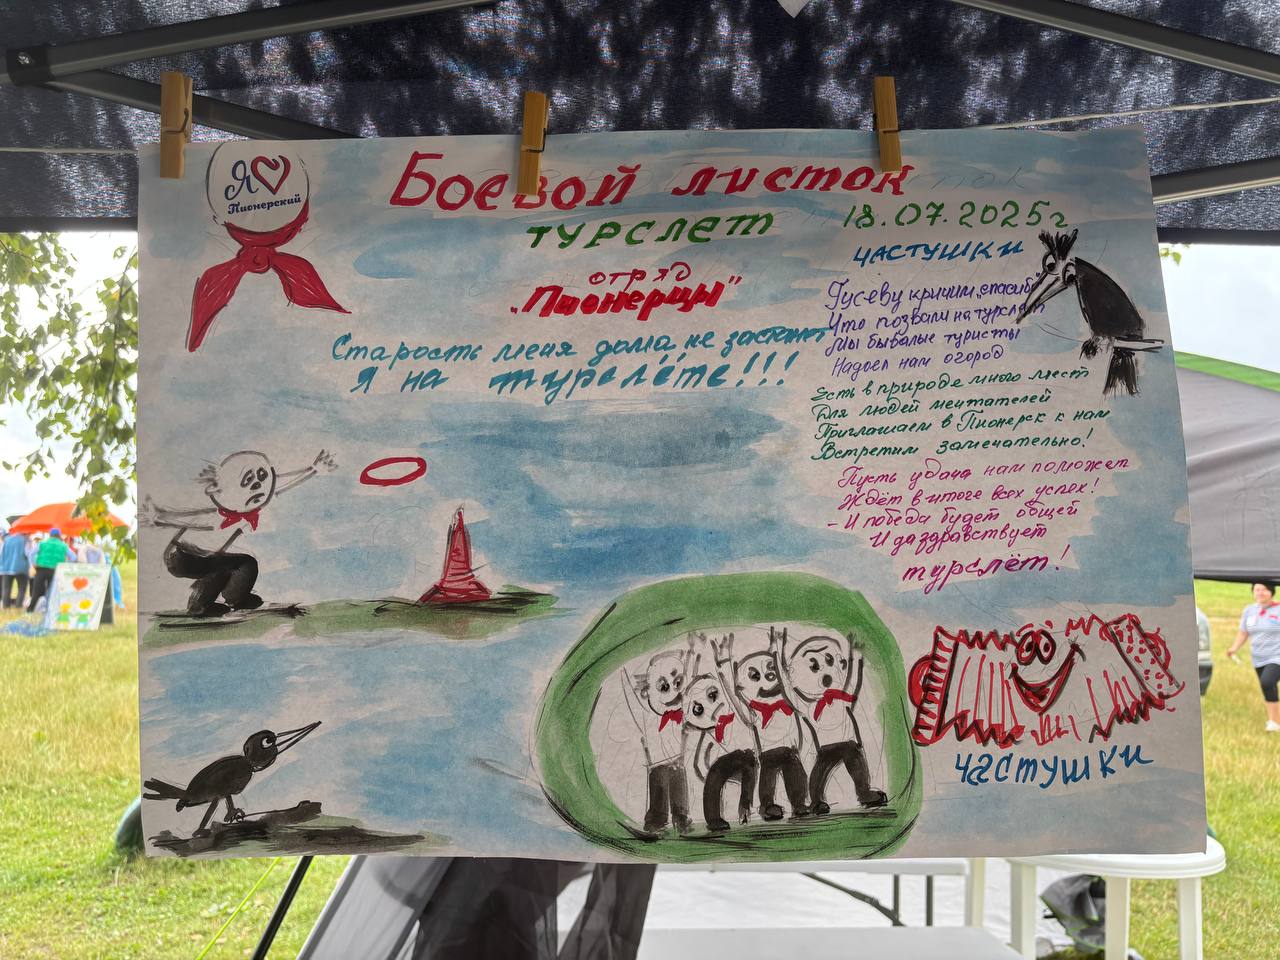 Я
Пионерский
Боевой листок
турслет 18.07.2025г
отряд
"Пионерцы"
Старость меня дома не застанет
Я на турслёте!!!
частушки
Гусеву кричим "спасибо"
Что позвали на турслёт
Мы бывалые туристы
Надоел нам огород
Есть в природе много мест
Для людей мечтателей
Приглашаем в Пионерск к нам
Встретим замечательно!
Пусть удача нам поможет
Ждёт в итоге всех успех!
- И победа будет общей
И да здравствует
турслёт!
частушки